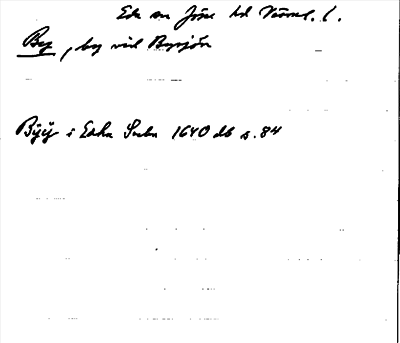 Eda sn Jösse hd Värml. l.
By, by vid Byrsjön
Byÿ i Edha Sochn 1640 db s. 84